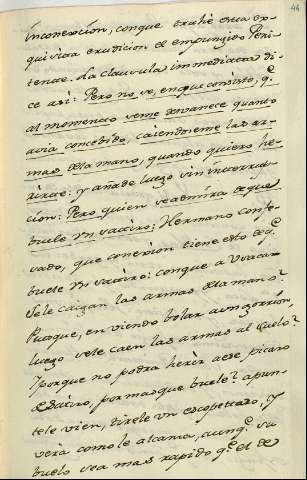 44
inconexcion, conque trahe esta ex-
quisita erudicion el compungido Peni-
tente. La clausula immediata di-
ce asi: Pero no se, en que consiste, q.e
al momento veme desvanece quanto
avia concebido, caiendoseme las ar-
mas de la mano, quando quiero he-
rirle: y añade luego sin interrup-
cion: Pero quien se admira de que
buele vn satiro; Hermano Confe-
sado, que conexion tiene esto de q.e
buele vn satiro: conque a Vsarced
se le caigan las armas de la mano?
Pues que, en viendo bolar a un gorrion,
luego se le caen las armas al suelo?
Y porque no podra herir a ese picaro
de Satiro, por mas que buele? apun-
tele vien, tirele vn escopetazo, y
verà como le alcanza, aunq.e su
buelo sea mas rapido q.e el de